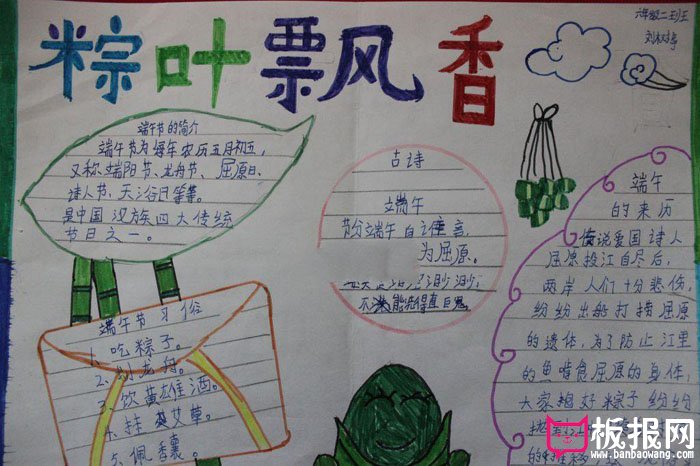 粽叶飘风香
六年级二班
端午节的简介
端午节为每年农历五月初五,
又称端阳节、龙舟节、屈原日、
诗人节、天谷日等等。
是中国汉族四大传统
节日之一。
古诗
端午
节分端午自谁言,
为屈原。
端午
的来历
传说爱国诗人
屈原投江自尽后,
两岸人们十分悲伤,
纷纷出船打捞屈原
的遗体,为了防止江里
的鱼啃食屈原的身体,
大家把好粽子纷纷
端午节习俗
1、吃粽子。
2、划龙舟。
3、饮黄雄酒。
4、挂艾草。
5、佩香囊。
板报网
www.banbaowang.com